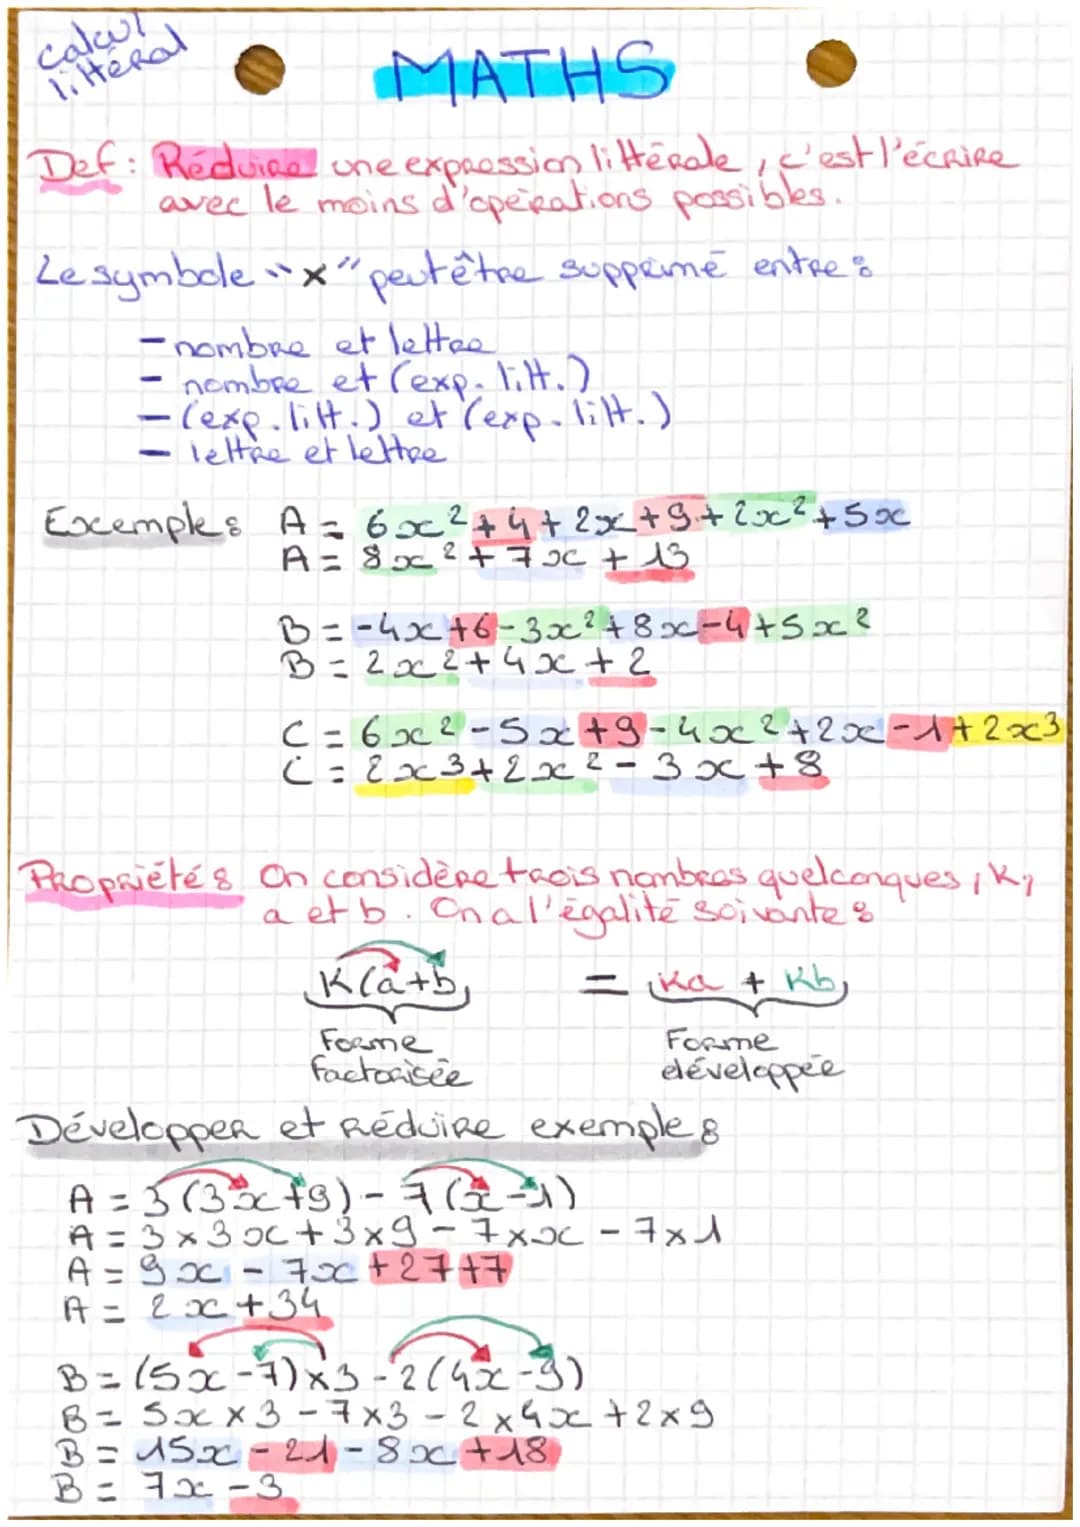 calcul
littéral
MATHS
Def : Réduire une expression littérale, c'est l'écrire
avec le moins d'opérations possibles.
Le symbole "x" peut être supprimé entre :
- nombre et lettre
- nombre et (exp. litt.)
- (exp. litt.) et (exp. litt.)
- lettre et lettre
Exemple : A = 6x² + 4 + 2x + 9 + 2x² + 5x
A = 8x² + 7x + 13
B = -4x + 6 - 3x² + 8x - 4 + 5x²
B = 2x² + 4x + 2
C = 6x² - 5x + 9 - 4x² + 2x - 1 + 2x³
C = 2x³ + 2x² - 3x + 8
Propriété : On considère trois nombres quelconques, K,
a et b. On a l'égalité soivante :
K(a+b) = Ka + Kb
Forme Forme
factorisée développée
Développer et Réduire exemple :
A = 3(3x+9) - 7(x-1)
A = 3×3x + 3×9 - 7×x - 7×1
A = 9x - 7x + 27 + 7
A = 2x + 34
B = (5x-7)×3 - 2(4x-9)
B = 5x×3 - 7×3 - 2×4x + 2×9
B = 15x - 21 - 8x + 18
B = 7x - 3